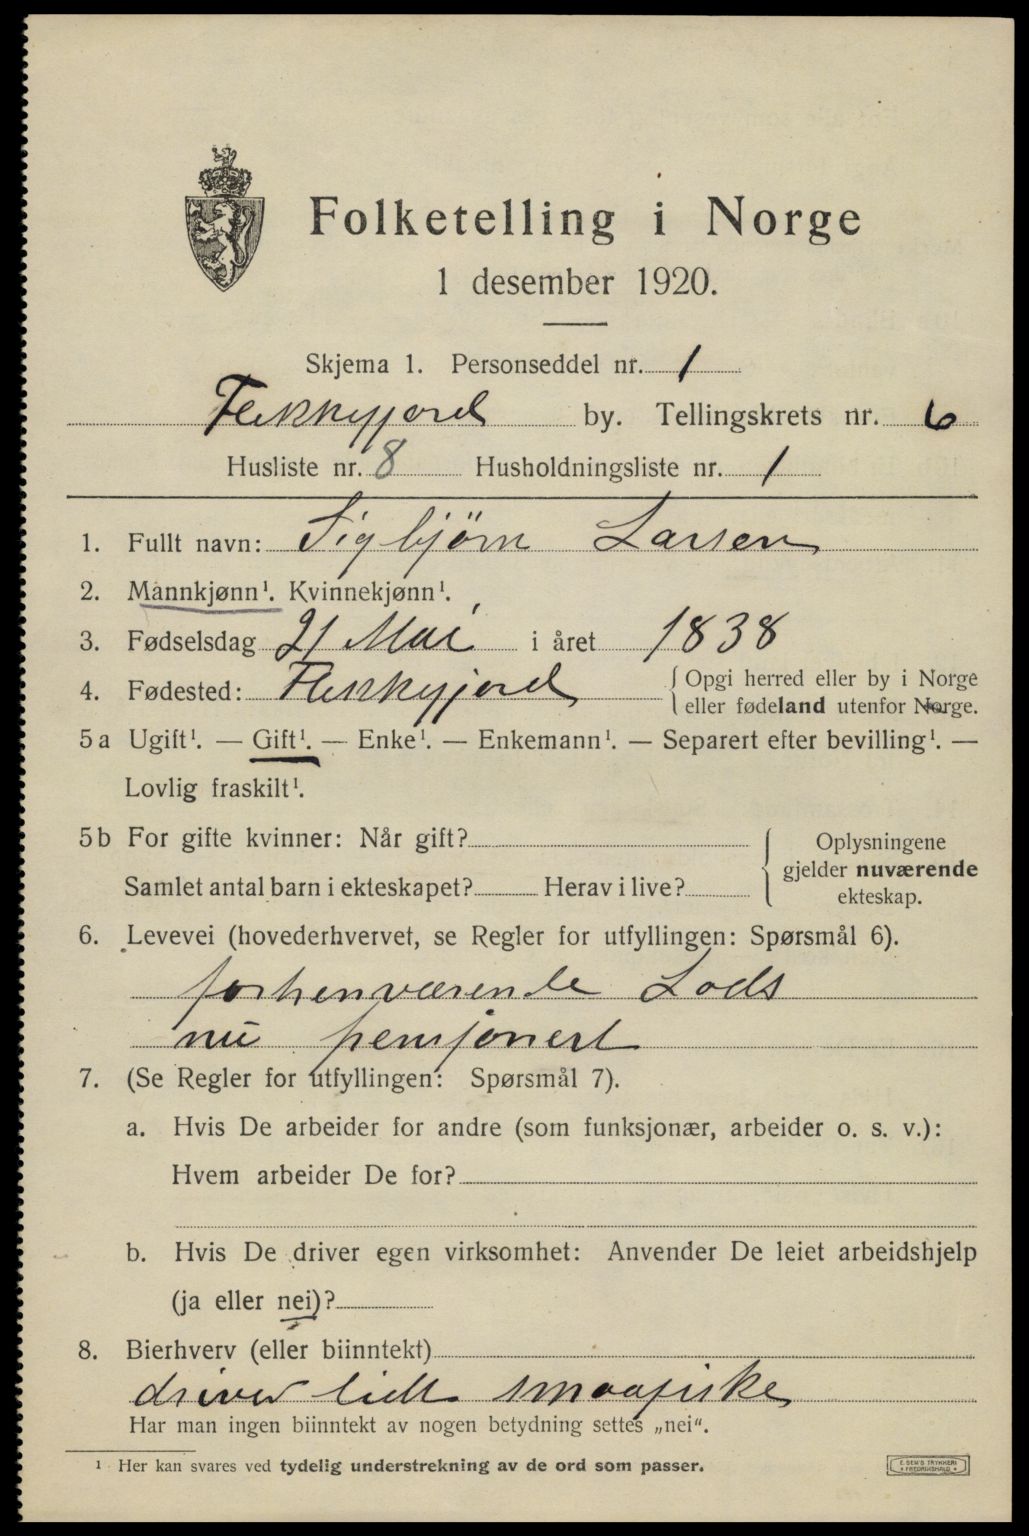 Folketelling i Norge
1 desember 1920.
Skjema 1. Personseddel nr. 1
Flekkefjord by. Tellingskrets nr. 6
Husliste nr. 8 Husholdningsliste nr. 1
1. Fullt navn: Sigbjørn Larsen
2. Mannkjønn¹. Kvinnekjønn¹.
3. Fødselsdag 21 Mai i året 1838
4. Fødested: Flekkefjord { Opgi herred eller by i Norge
eller fødeland utenfor Norge.
5 a Ugift¹. — Gift¹. — Enke¹. — Enkemann¹. — Separert efter bevilling¹. —
Lovlig fraskilt¹.
5 b For gifte kvinner: Når gift?
Samlet antal barn i ekteskapet? Herav i live?
Oplysningene
gjelder nuværende
ekteskap.
6. Levevei (hovederhvervet, se Regler for utfyllingen: Spørsmål 6).
forhenværende Lods
nu pensjonert
7. (Se Regler for utfyllingen: Spørsmål 7).
a. Hvis De arbeider for andre (som funksjonær, arbeider o. s. v.):
Hvem arbeider De for?
b. Hvis De driver egen virksomhet: Anvender De leiet arbeidshjelp
(ja eller nei)?
8. Bierhverv (eller biinntekt)
driver lidt smaafiske
Har man ingen biinntekt av nogen betydning settes „nei“.
¹ Her kan svares ved tydelig understrekning av de ord som passer.
E. SEM'S TRYKKERI
FREDRIKSHALD